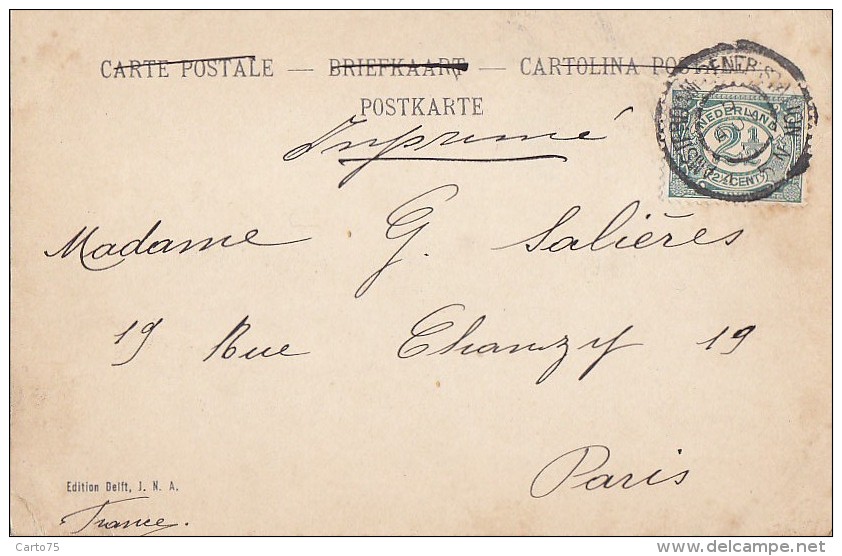 CARTE POSTALE — BRIEFKAART — CARTOLINA POSTALE
POSTKARTE
Imprimé
NEDERLAND
2½
2½ CENT
Madame G. Salières
19 Rue Chanzy 19
Paris
Edition Delft, J. N. A.
France.
Carto75
www.delcampe.net